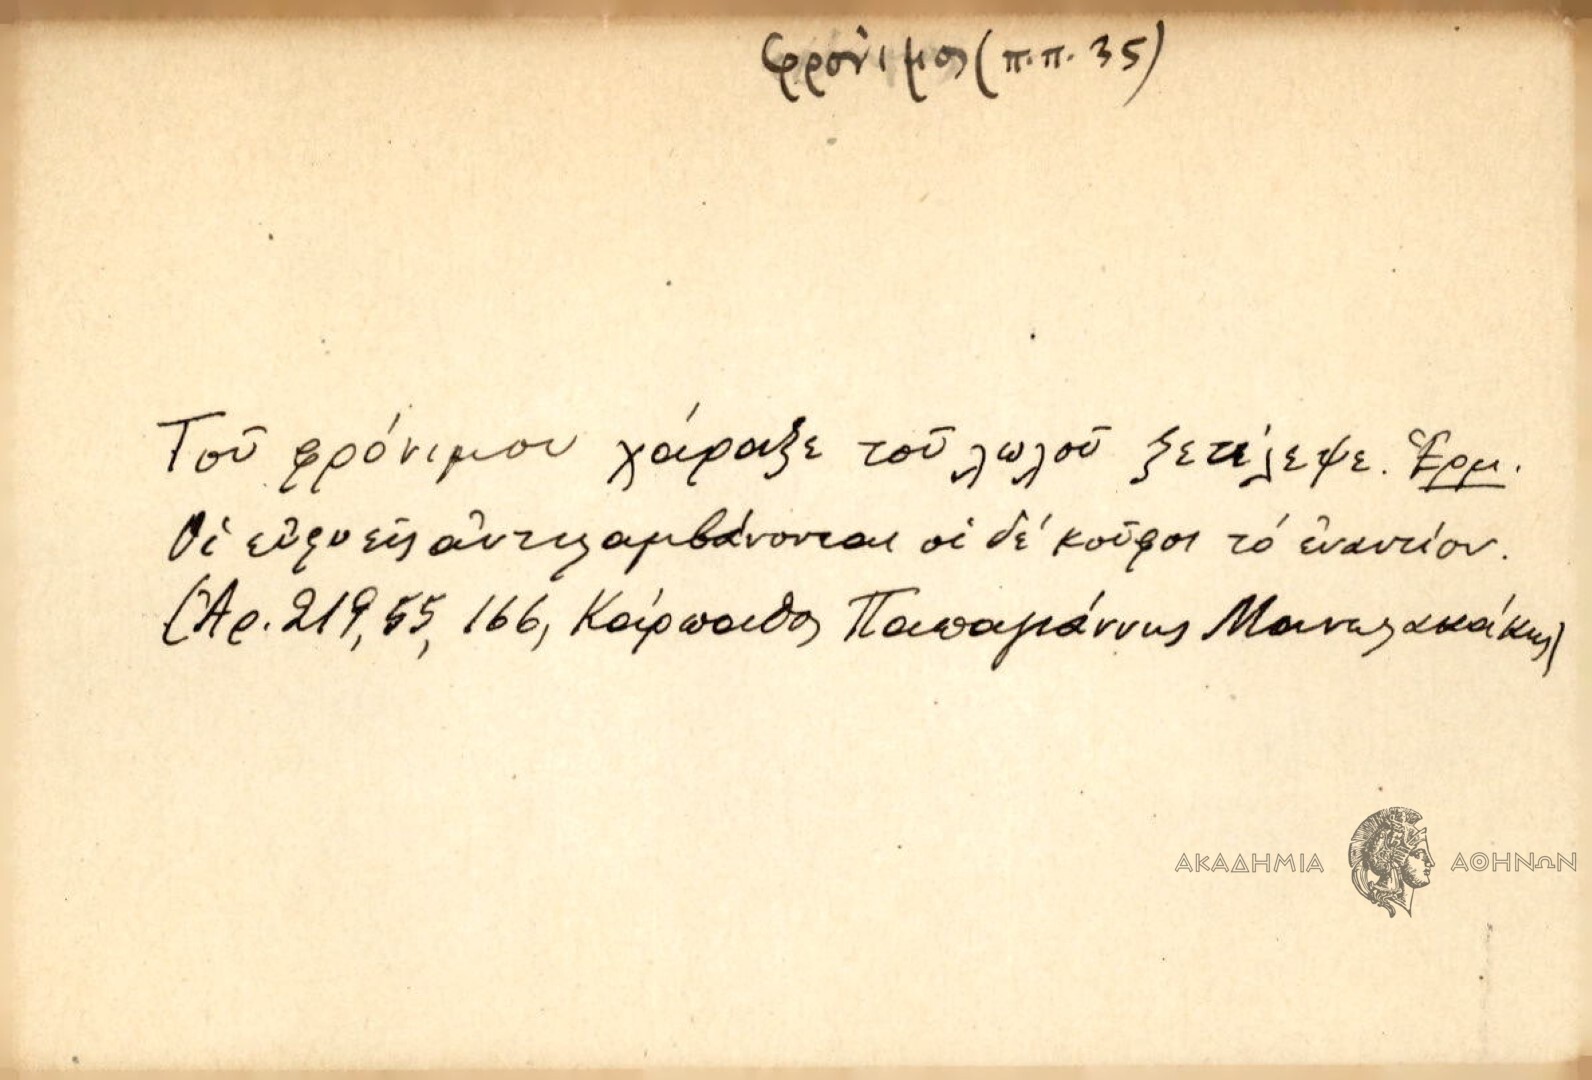 φρόνιμος (π.π. 35)
Τοῦ φρόνιμου χάραξε τοῦ λωλοῦ ξετέλεψε. Ἑρμ.
Οἱ εὐφυεῖς ἀντιλαμβάνονται οἱ δέ κοῦφοι τό ἐναντίον.
(Ἀρ. 219, 55, 166, Κάρπαθος Παπαγιάννης Μανωλακάκης)
ΑΚΑΔΗΜΙΑ ΑΘΗΝΩΝ